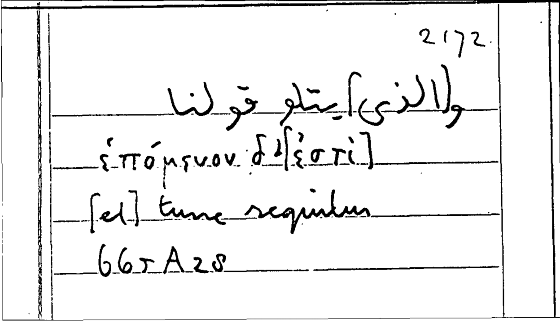 2172
و[الذي] يتلو قولنا
ἑπόμενον δ'[ἐστὶ]
[et] tunc sequitur
665 A 28